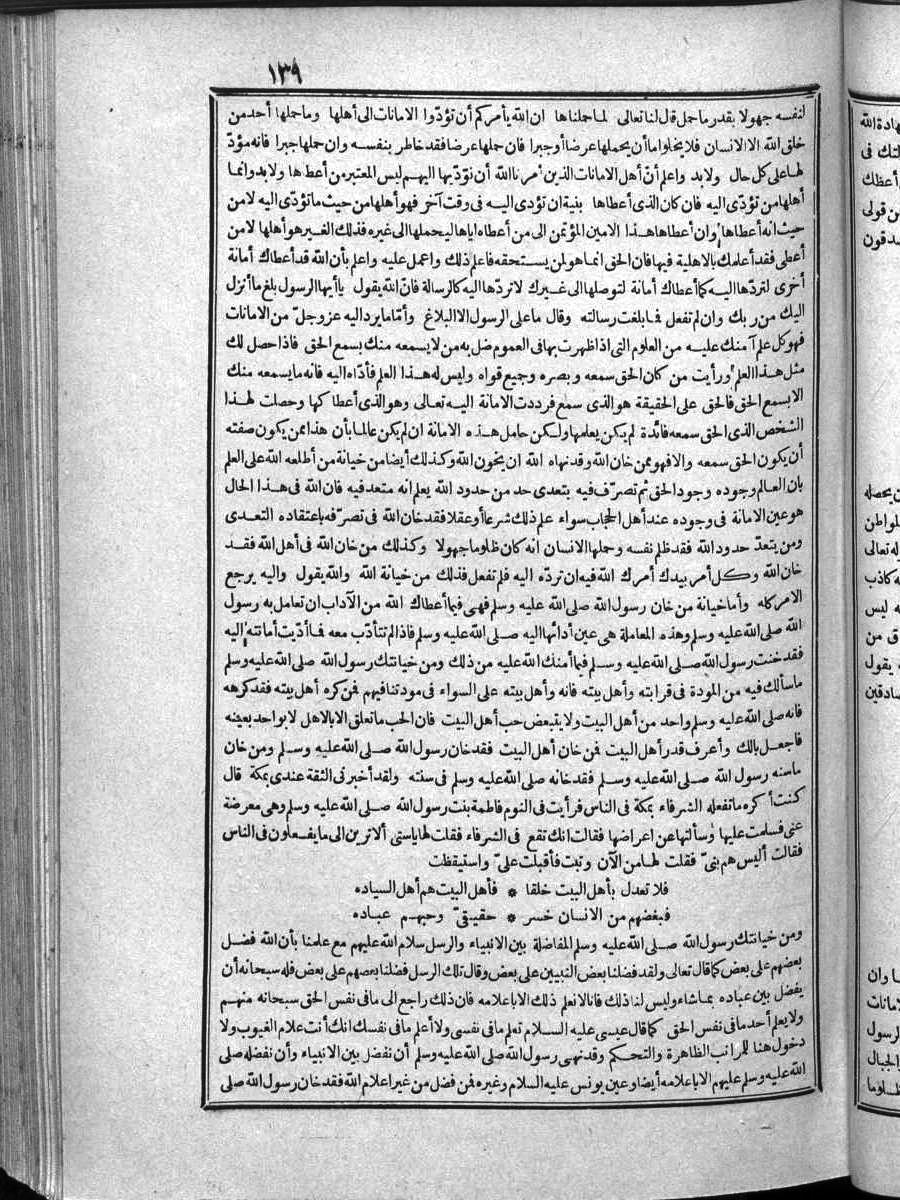 ١٣٩
لنفسه جهولا بقدر ما حمل قال لنا تعالى لما حملناها ان الله يأمركم أن تؤدّوا الامانات الى أهلها وما حملها أحد من
خلق الله الا الانسان فلا يخلو اما أن يحملها عرضا أو جبرا فان حملها عرضا فقد خاطر بنفسه وان حملها جبرا فانه مؤدّ
لها على كل حال ولابد واعلم أنّ أهل الامانات الذين أمرنا الله أن نؤدّيها اليهم ليس المعتبر من أعطاها ولابد وانما
أهلها من تؤدّى اليه فان كان الذى أعطاها بنية ان تؤدى اليه فى وقت آخر فهو أهلها من حيث ما تؤدّى اليه لا من
حيث انه أعطاها وان أعطاها هذا الامين المؤتمن الى من أعطاه اياها ليحملها الى غيره فذلك الغير هو أهلها لا من
أعطى فقد أعلمك بالاهلية فيها فان الحق انما هو لمن يستحقه فاعلم ذلك واعمل عليه واعلم بأن الله قد أعطاك أمانة
أخرى لتردّها اليه كما أعطاك أمانة لتوصلها الى غيرك لا تردّها اليه كالرسالة فانّ الله يقول يا أيها الرسول بلغ ما أنزل
اليك من ربك وان لم تفعل فما بلغت رسالته وقال ما على الرسول الا البلاغ وأمّا ما يرد اليه عز وجلّ من الامانات
فهو كل علم آمنك عليه من العلوم التى اذا ظهرت بها فى العموم ضل به من لا يسمعه منك بسمع الحق فاذا حصل لك
مثل هذا العلم ورأيت من كان الحق سمعه وبصره وجميع قواه وليس له هذا العلم فأدّاه اليه فانه ما يسمعه منك
الا بسمع الحق فالحق على الحقيقة هو الذى سمع فرددت الامانة اليه تعالى وهو الذى أعطاكها وحصلت لهذا
الشخص الذى الحق سمعه فائدة لم يكن يعلمها ولكن حامل هذه الامانة ان لم يكن عالما بأن هذا ممن يكون صفته
أن يكون الحق سمعه والا فهو ممن خان الله وقد نهاه الله ان يخون الله وكذلك أيضا من خيانة من أطلعه الله على العلم
بان العالم وجوده وجود الحق ثم تصرّف فيه بتعدى حد من حدود الله يعلم انه متعد فيه فان الله فى هذا الحال
هو عين الامانة فى وجوده عند أهل الحجاب سواء علم ذلك شرعا أو عقلا فقد خان الله فى تصرّفه باعتقاده التعدى
ومن يتعدّ حدود الله فقد ظلم نفسه وحملها الانسان انه كان ظلوما جهولا وكذلك من خان الله فى أهل الله فقد
خان الله وكل أمر بيدك أمرك الله فيه ان تردّه اليه فلم تفعل فذلك من خيانة الله والله يقول واليه يرجع
الامر كله وأما خيانة من خان رسول الله صلى الله عليه وسلم فهى فيما أعطاك الله من الآداب ان تعامل به رسول
الله صلى الله عليه وسلم وهذه المعاملة هى عين أدائها اليه صلى الله عليه وسلم فاذا لم تتأدّب معه فما أدّيت أمانته اليه
فقد خنت رسول الله صلى الله عليه وسلم فيما أمنك الله عليه من ذلك ومن خيانتك رسول الله صلى الله عليه وسلم
ما سألك فيه من المودة فى قرابته وأهل بيته فانه وأهل بيته على السواء فى مودتنا فيهم فمن كره أهل بيته فقد كرهه
فانه صلى الله عليه وسلم واحد من أهل البيت ولا يتبعض حب أهل البيت فان الحب ما تعلق الا بالاهل لا بواحد بعينه
فاجعل بالك وأعرف قدر أهل البيت فمن خان أهل البيت فقد خان رسول الله صلى الله عليه وسلم ومن خان
ما سنه رسول الله صلى الله عليه وسلم فقد خانه صلى الله عليه وسلم فى سنته ولقد أخبرنى الثقة عندى بمكة قال
كنت أكره ما تفعله الشرفاء بمكة فى الناس فرأيت فى النوم فاطمة بنت رسول الله صلى الله عليه وسلم وهى معرضة
عنى فسلمت عليها وسألتها عن اعراضها فقالت انك تقع فى الشرفاء فقلت لها ياستى ألا ترين الى ما يفعلون فى الناس
فقالت أليس هم بنىّ فقلت لها من الآن وتبت فأقبلت علىّ واستيقظت
فلا تعدل بأهل البيت خلقا * فأهل البيت هم أهل السياده
فبغضهم من الانسان خسر * حقيقىّ وحبهم عباده
ومن خيانتك رسول الله صلى الله عليه وسلم المفاضلة بين الانبياء والرسل سلام الله عليهم مع علمنا بأن الله فضل
بعضهم على بعض كما قال تعالى ولقد فضلنا بعض النبيين على بعض وقال تلك الرسل فضلنا بعضهم على بعض فله سبحانه أن
يفضل بين عباده بما شاء وليس لنا ذلك فانا لا نعلم ذلك الا باعلامه فان ذلك راجع الى ما فى نفس الحق سبحانه منهم
ولا يعلم أحد ما فى نفس الحق كما قال عيسى عليه السلام تعلم ما فى نفسى ولا أعلم ما فى نفسك انك أنت علام الغيوب ولا
دخول هنا للمراتب الظاهرة والتحكم وقد نهى رسول الله صلى الله عليه وسلم أن نفضل بين الانبياء وأن نفضله صلى
الله عليه وسلم عليهم الا باعلامه أيضا وعين يونس عليه السلام وغيره فمن فضل من غير اعلام الله فقد خان رسول الله صلى